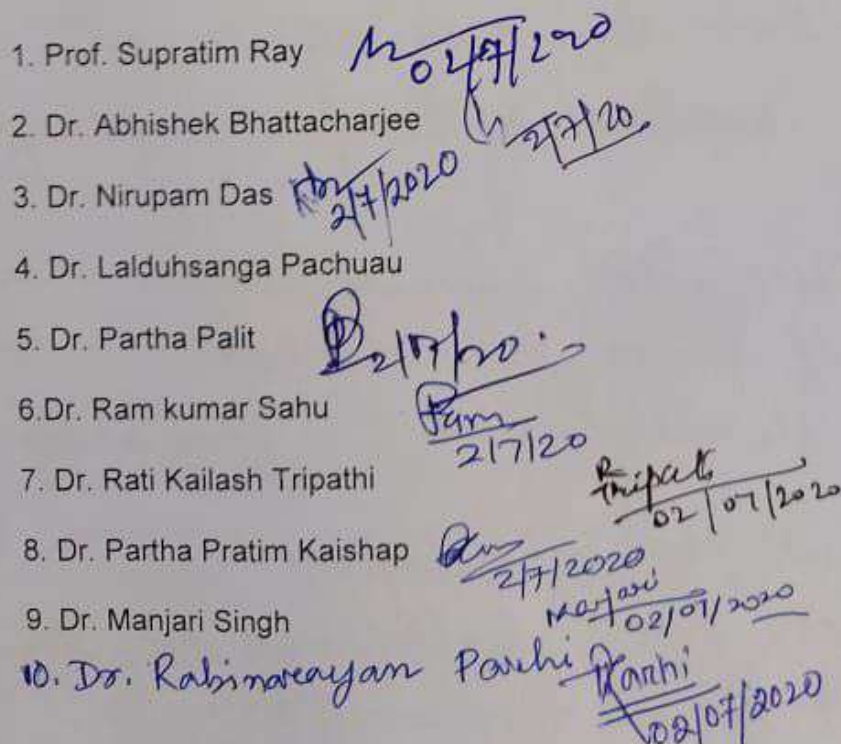 1. Prof. Supratim Ray 02/7/2020
2. Dr. Abhishek Bhattacharjee 2/7/20
3. Dr. Nirupam Das 2/7/2020
4. Dr. Lalduhsanga Pachuau
5. Dr. Partha Palit 2/07/20.
6.Dr. Ram kumar Sahu Ram 2/7/20
7. Dr. Rati Kailash Tripathi 02/07/2020
8. Dr. Partha Pratim Kaishap 2/7/2020
9. Dr. Manjari Singh Manjari 02/07/2020
10. Dr. Rabinarayan Parhi Parhi 02/07/2020